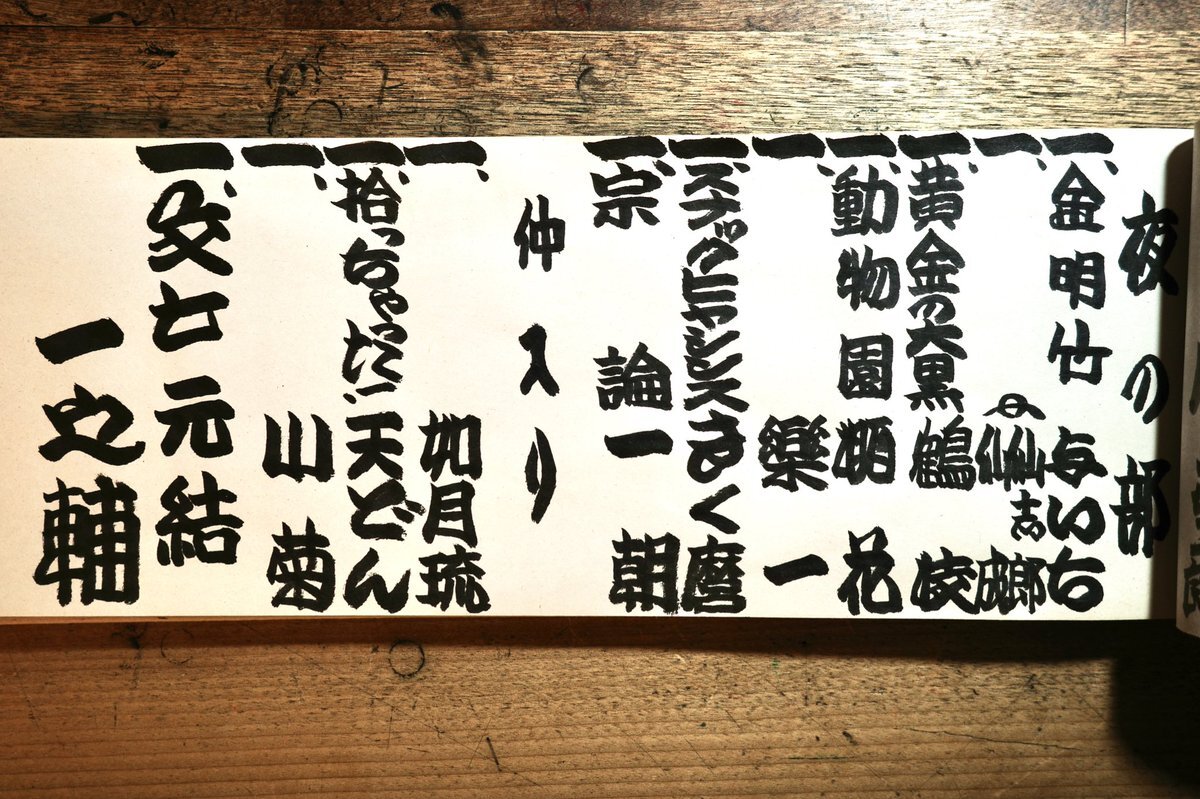 夜の部
一、金明竹 与いち
一、 仙志郎
一、黄金の大黒 鶴枝
一、動物園 栖花
一、 樂一
一、スナグヒヤシンス きく麿
一、宗論 一朝
仲入り
一、 如月琉
一、拾っちゃった! 天どん
一、 小菊
一、文七元結
一之輔